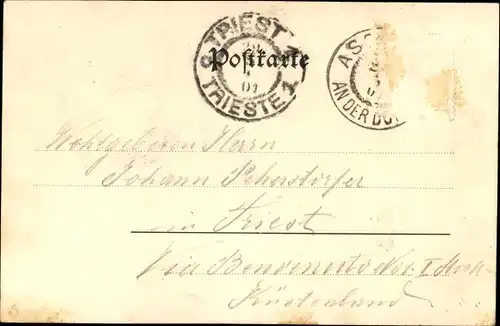 TRIEST
Postkarte
01
TRIESTE 1
AS
AN DER DO
Wohlgeboren Herrn
Johann
in Triest
Via Benvenuto No I Stock
Küstenland